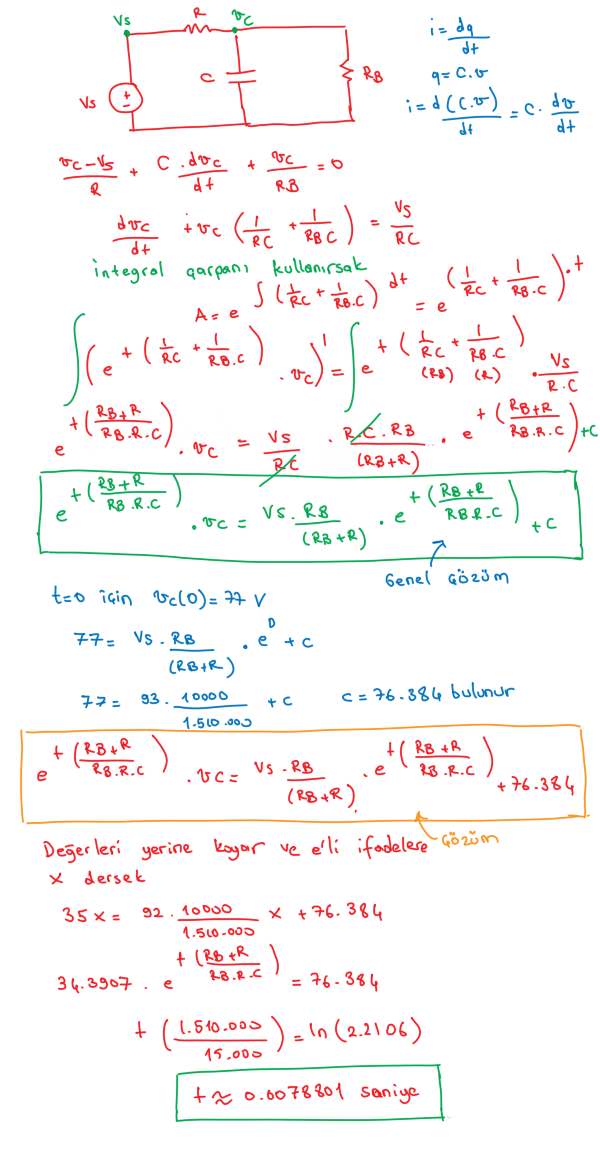 Vs R vc
Vs C RB
i = dq/dt
q = C.v
i = d(C.v)/dt = C. dv/dt
vc-Vs/R + C.dvc/dt + vc/RB = 0
dvc/dt + vc (1/RC + 1/RBC) = Vs/RC
integral çarpanı kullanırsak
A = e^∫(1/RC + 1/RB.C) dt = e^(1/RC + 1/RB.C).t
∫(e^t(1/RC + 1/RB.C) . vc)' = ∫e^t(1/RC + 1/RB.C) . Vs/R.C
(RB) (R)
e^t(RB+R/RB.R.C) . vc = Vs/RC . R.C.RB/(RB+R) . e^t(RB+R/RB.R.C) +C
e^t(RB+R/RB.R.C) . vc = Vs.RB/(RB+R) . e^t(RB+R/RB.R.C) + C
Genel Çözüm
t=0 için vc(0) = 77 V
77 = Vs.RB/(RB+R) . e^0 + c
77 = 93. 10000/1.510.000 + c c = 76.384 bulunur
e^t(RB+R/RB.R.C) . vc = Vs.RB/(RB+R) . e^t(RB+R/RB.R.C) + 76.384
Çözüm
Değerleri yerine koyar ve e'li ifadelere
x dersek
35x = 92. 10000/1.510.000 x + 76.384
34.3907 . e^t(RB+R/RB.R.C) = 76.384
t (1.510.000/15.000) = ln (2.2106)
t ≈ 0.0078801 saniye